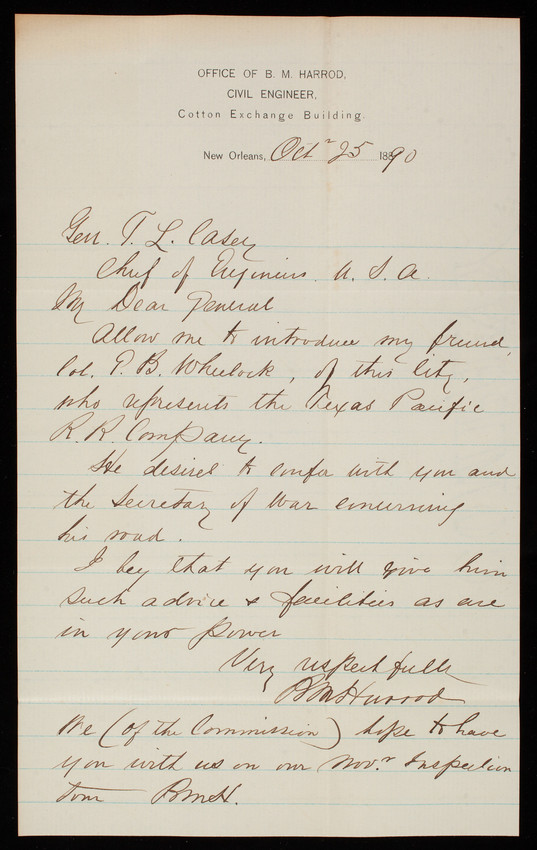 OFFICE OF B. M. HARROD,
CIVIL ENGINEER,
Cotton Exchange Building.
New Orleans, Octr 25 1890
Gen. T. L. Casey
Chief of Engineers. U. S. A.
My Dear General
Allow me to introduce my friend,
Col. P. B. Wheelock, of this City,
who represents the Texas Pacific
R. R. Company.
He desires to confer with you and
the Secretary of War concerning
his road.
I beg that you will give him
such advice & facilities as are
in your power
Very respectfully
BM Harrod
We (of the Commission) hope to have
you with us on our Novr Inspection
tour BMH.